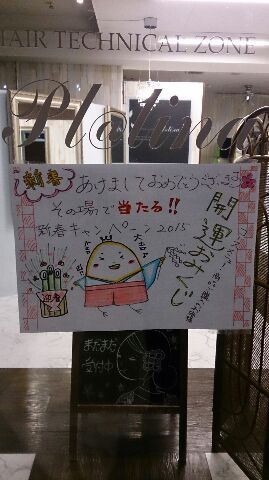 HAIR TECHNICAL ZONE
Plolina
新春
あけましておめでとうございます
その場で当たる!!
新春キャンペーン2015
開運おみくじ
迎春
まだまだ
受付中